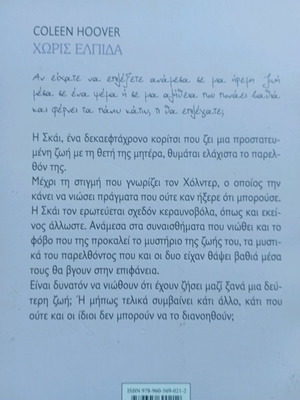 COLEEN HOOVER
ΧΩΡΙΣ ΕΛΠΙΔΑ
Αν είχατε να επιλέξετε ανάμεσα σε μια ήρεμη ζωή
μέσα σε ένα ψέμα ή σε μια αλήθεια που πονάει βαθιά
και φέρνει τα πάνω κάτω, τι θα επιλέγατε;
Η Σκάι, ένα δεκαεφτάχρονο κορίτσι που ζει μια προστατευ-
μένη ζωή με τη θετή της μητέρα, θυμάται ελάχιστα το παρελ-
θόν της.
Μέχρι τη στιγμή που γνωρίζει τον Χόλντερ, ο οποίος την
κάνει να νιώσει πράγματα που ούτε καν ήξερε ότι μπορούσε.
Η Σκάι τον ερωτεύεται σχεδόν κεραυνοβόλα, όπως και εκεί-
νος άλλωστε. Ανάμεσα στα συναισθήματα που νιώθει και το
φόβο που της προκαλεί το μυστήριο της ζωής του, τα μυστι-
κά του παρελθόντος που και οι δυο είχαν θάψει βαθιά μέσα
τους θα βγουν στην επιφάνεια.
Είναι δυνατόν να νιώθουν ότι έχουν ζήσει μαζί ξανά μια δεύ-
τερη ζωή; Ή μήπως τελικά συμβαίνει κάτι άλλο, κάτι που
ούτε και οι ίδιοι δεν μπορούν να το διανοηθούν;
ISBN 978-960-569-021-2